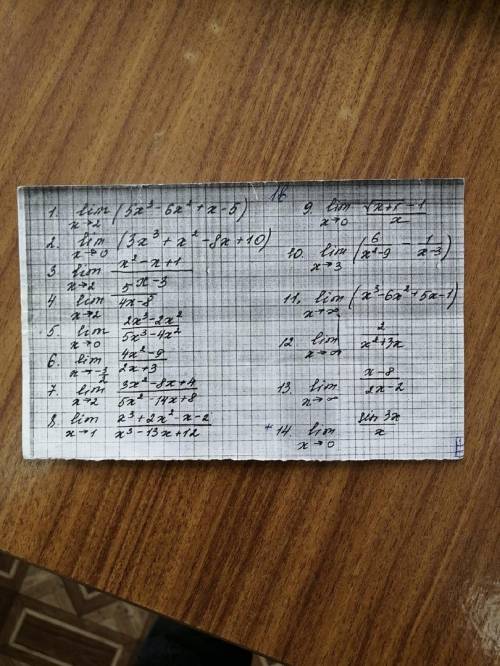 18
1. lim x→2 (5x³-6x²+x-5)
2. lim x→0 (3x³+x²-8x+10)
3. lim x→2 (x²-x+1)/(x-3)
4. lim x→2 5/(4x-8)
5. lim x→0 (2x³-2x²)/(5x³-4x²)
6. lim x→-3/2 (4x²-9)/(2x+3)
7. lim x→2 (3x²-8x+4)/(5x²-14x+8)
8. lim x→1 (x³+2x²-x-2)/(x³-13x+12)
9. lim x→0 (√(x+1)-1)/x
10. lim x→3 (6/(x²-9) - 1/(x-3))
11. lim x→∞ (x³-6x²+5x-1)
12. lim x→∞ 2/(x²+3x)
13. lim x→∞ (x-8)/(2x-2)
+14. lim x→0 sin 3x/x